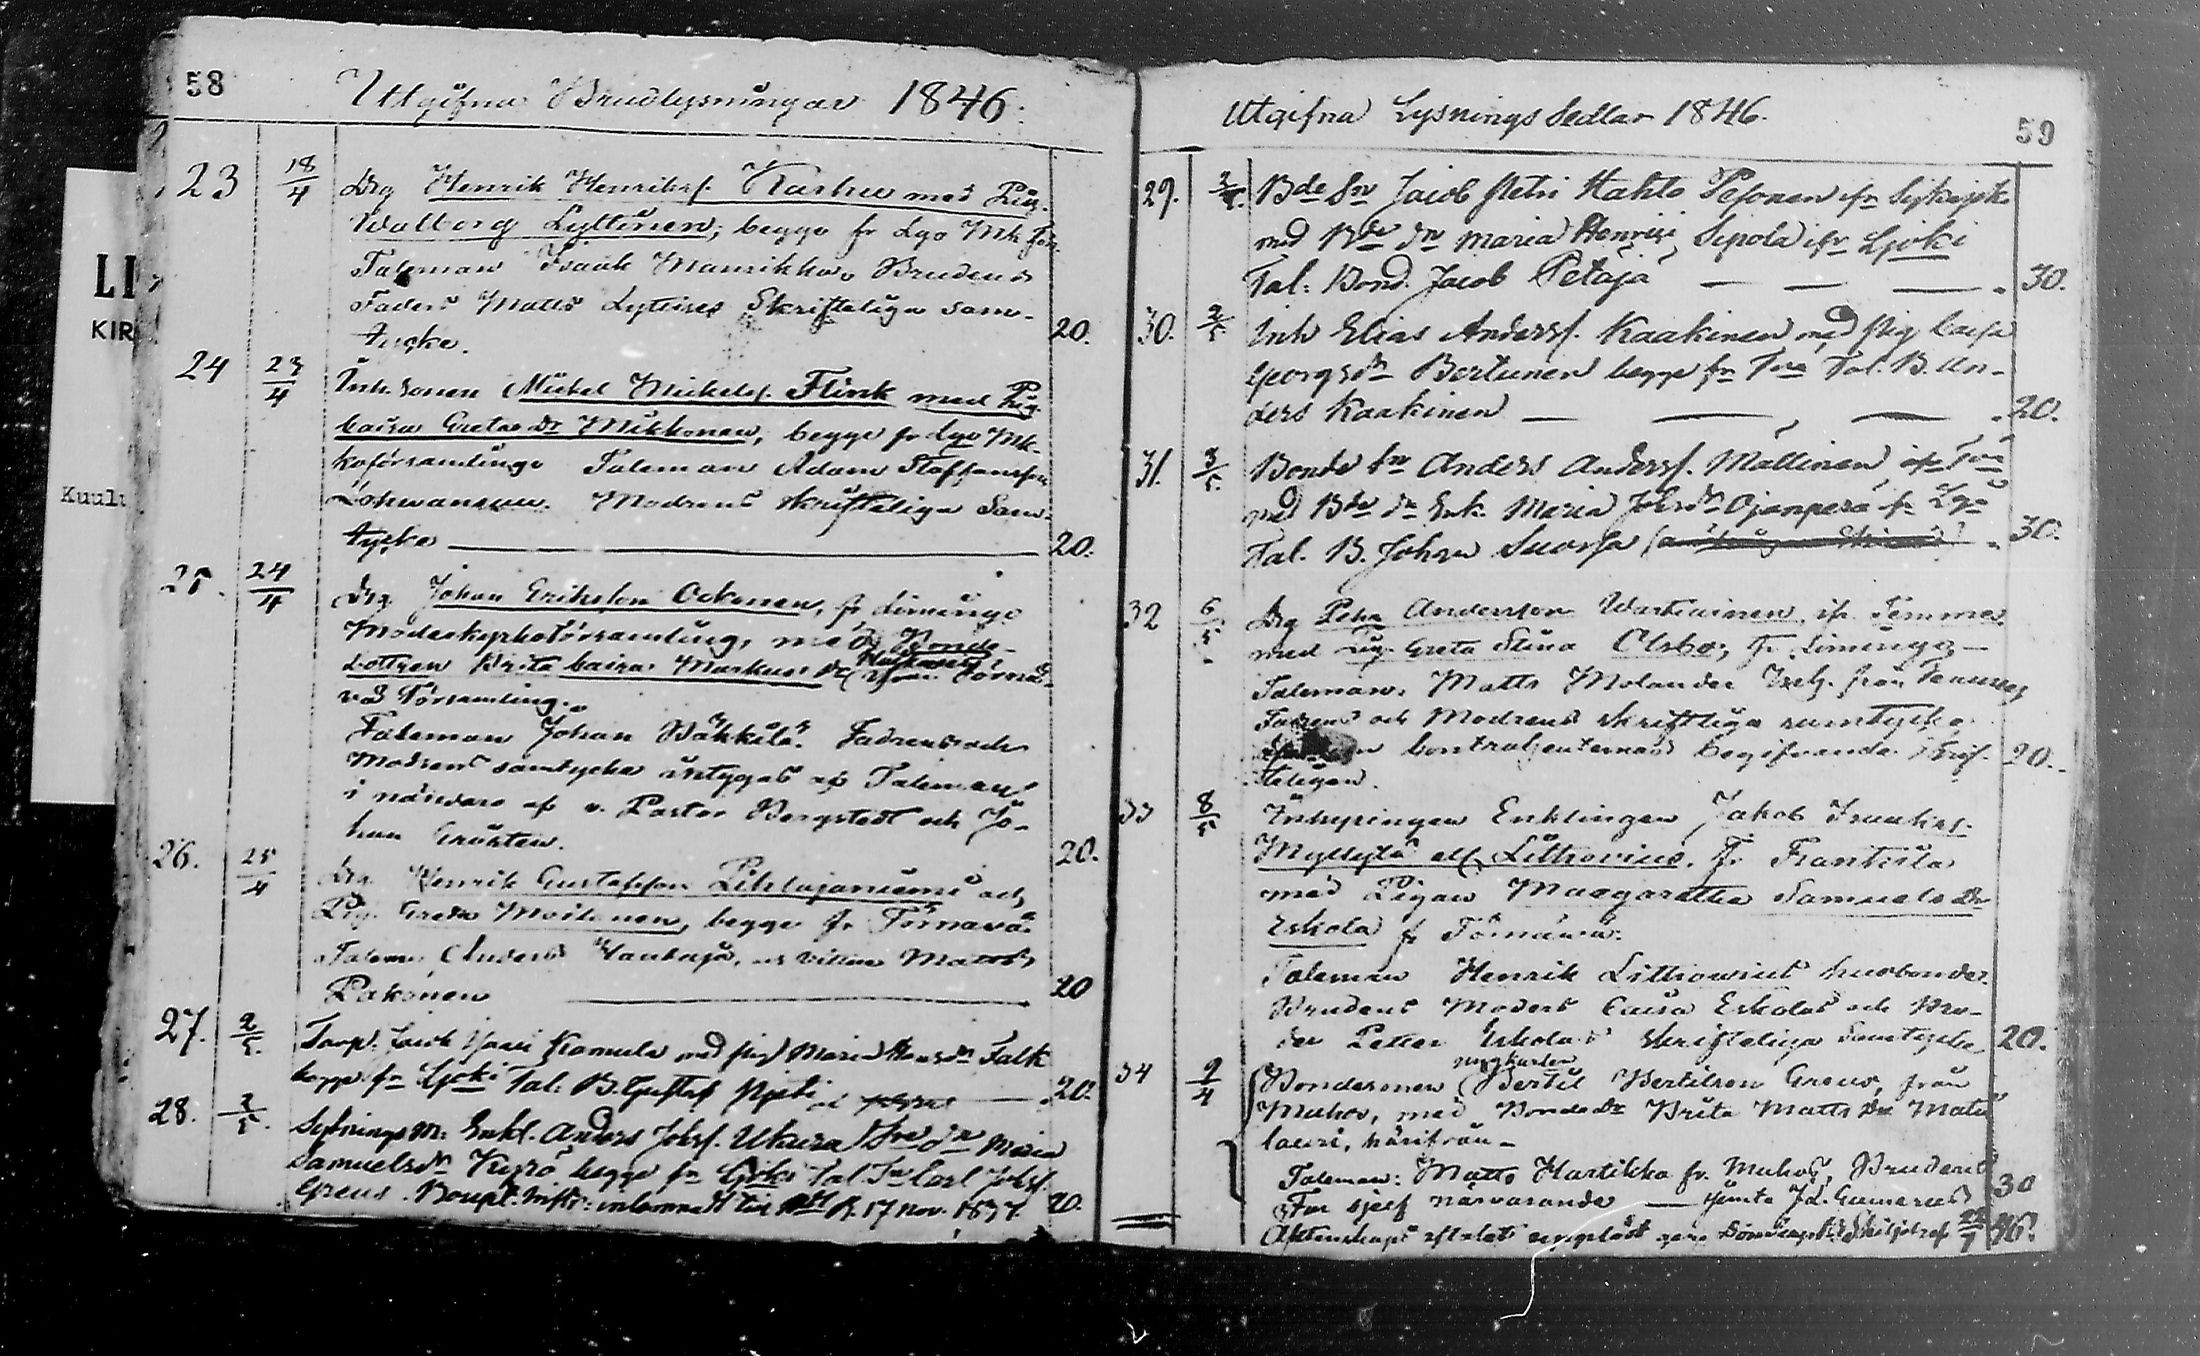 58
Utgifna Brudlysningar 1846.
23 18/4 Drg Henrik Henrikss. Karhu med Pig.
Walborg Lyttinen; begge fr Lgo Mk för.
Taleman Isaak Mannikko. Brudens
Faders Matts Lyttines Skrifteliga sam-
tycke. 20.
24 23/4 Inh. sonen Mickel Mickelss. Flink med Pig.
Caisa Greta Dr Mikkonen, begge fr Lgo Mk-
koförsamlings Taleman Adam Staffansson
Modrens skrifteliga Sam-
tycke 20.
25. 24/4 Drg. Johan Eriksson Ockonen, fr Limingo
Moderkyrkoförsamling, med Bonde-
dottren Brita Caisa Markus Dr från Törnä-
vä Församling.
Taleman Johan Väkkilä. Fadrens och
Modrens samtycke intygas af Taleman
i närvaro af v. Pastor Bergstedt och Jo-
han 20.
26. 25/4 Drg. Henrik Gustafsson Pihlajaniemi och
Pig. Greta Moilanen, begge fr Törnävä.
Talemn Anders och Matts
Pakonen 20
27. 2/5. Torp. Jacob Kamula med pig Maria Hansdr Falk
begge fr Ljoki Tal. B. Gustaf 20.
28. 2/5. Enkl. Anders Johss. Ukura dr Maria
Samuelsdr Kyrö begge fr Ljoki Tal. Carl Johss.
Greus. inlemnadt til 17 Nov. 1837. 20.
Utgifna Lysnings Sedlar 1846.
59
29. 2/5. Bde Sn Jacob Petri Hahto Pesonen
med Bde dn Maria Henrici Sipola ifr Ljoki
Tal: Bond. Jacob Petäjä 30.
30. 2/5 Inh Elias Anderss. Kaakinen med pig Caisa
Georgsdr Bertunen begge fr Tal. B. An-
ders Kaakinen 20.
31. 3/5. Bonde Sn Anders Anderss. Mällinen, ifr
med Bde dr Enk. Maria Johsdr Ojanperä fr Lgo
Tal. B. Johan Suorsa 30.
32 6/5 Drg Pehr Andersson Wartiainen, ifr Temmes
med Pig. Greta Stina Olsbo, fr Limingo
Taleman. Matts Molander Inh. från Temmes
Fadrens och Modrens skriftliga samtycke
Contrahenternas begifvande skrif-
teligen. 20.
33 8/5 Inhysingen Enklingen Jakob Isaakss.
Myllylä ell. Littovius, fr Frantsila
med Pigan Margaretha Samuels Dr
Eskola fr Törnävä.
Taleman Henrik Littowius husbonde.
Brudens Moders Caisa Eskolas och Bro-
der Petter Eskolas skrifteliga samtycke 20.
34 9/4 Bondesonen ungkarlen Bertil Bertilson Greus, från
Muhos, med Bonde Dr Brita Matts Dr Matu
lauri, härifrån
Taleman: Matts Hartikka fr. Muhos, Brudens
Far sjelf närvarande
Äktenskaps aftalet upplöst gen. Domkapit. Skiljobref 22/7 46.
30
LI
KIR
Kuulu